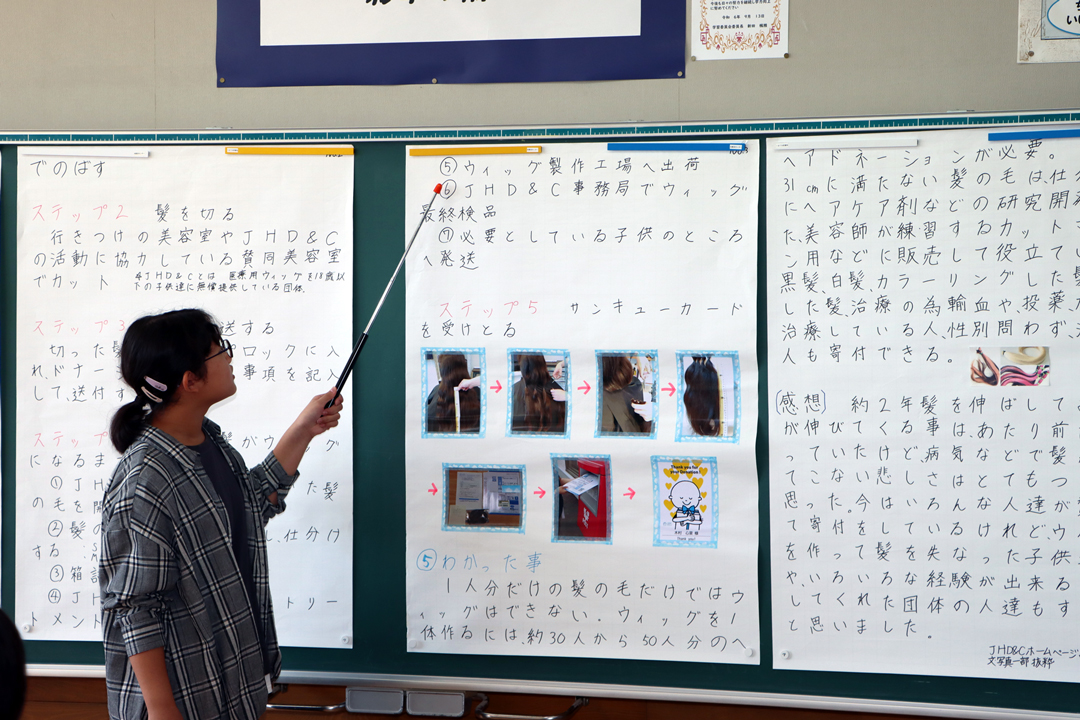 今年 6年 9月 13日
でのばす
ステップ2 髪を切る
行きつけの美容室やJHD&C
の活動に協力している賛同美容室
でカット
※JHD&Cとは 医療用ウィッグを18歳以
下の子供達に無償提供している団体
ステップ3
送する
切った髪
ロックに入
れ、ドナー
事項を記入
して、送付す
ステップ
髪がウィッグ
になるま
①JH
た髪
の毛を開
②髪の
し、仕分け
する
③箱詰
④JH
トリー
トメント
⑤ウィッグ製作工場へ出荷
⑥JHD&C事務局でウィッグ
最終検品
⑦必要としている子供のところ
へ発送
ステップ5 サンキューカード
を受けとる
Thank you for
your Donation!
Thank you!
⑤わかった事
1人分だけの髪の毛だけではウ
ィッグはできない。ウィッグを1
体作るには、約30人から50人分のヘ
ヘアドネーションが必要。
31cmに満たない髪の毛は、仕分
にヘアケア剤などの研究開発
た、美容師が練習するカット
ン用などに販売して役立てい
黒髪、白髪、カラーリングした髪
した髪、治療の為輸血や、投薬
治療している人、性別問わず、
人も寄付できる。
〔感想〕 約2年髪を伸ばして
が伸びてくる事は、あたり前
っていたけど、病気などで髪
てこない悲しさはとてもつ
思った。今はいろんな人達が
て寄付をしているけれど、ウ
を作って髪を失なった子供
や、いろいろな経験が出来る
してくれた団体の人達もす
と思いました。
JHD&Cホームページ
文写真一部抜粋